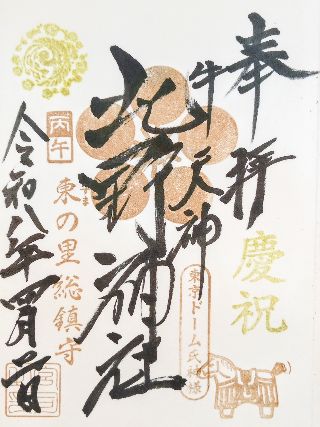 奉拝
慶祝
牛天神
北野神社
東京ドーム氏神様
丙午
東の里総鎮守
令和八年